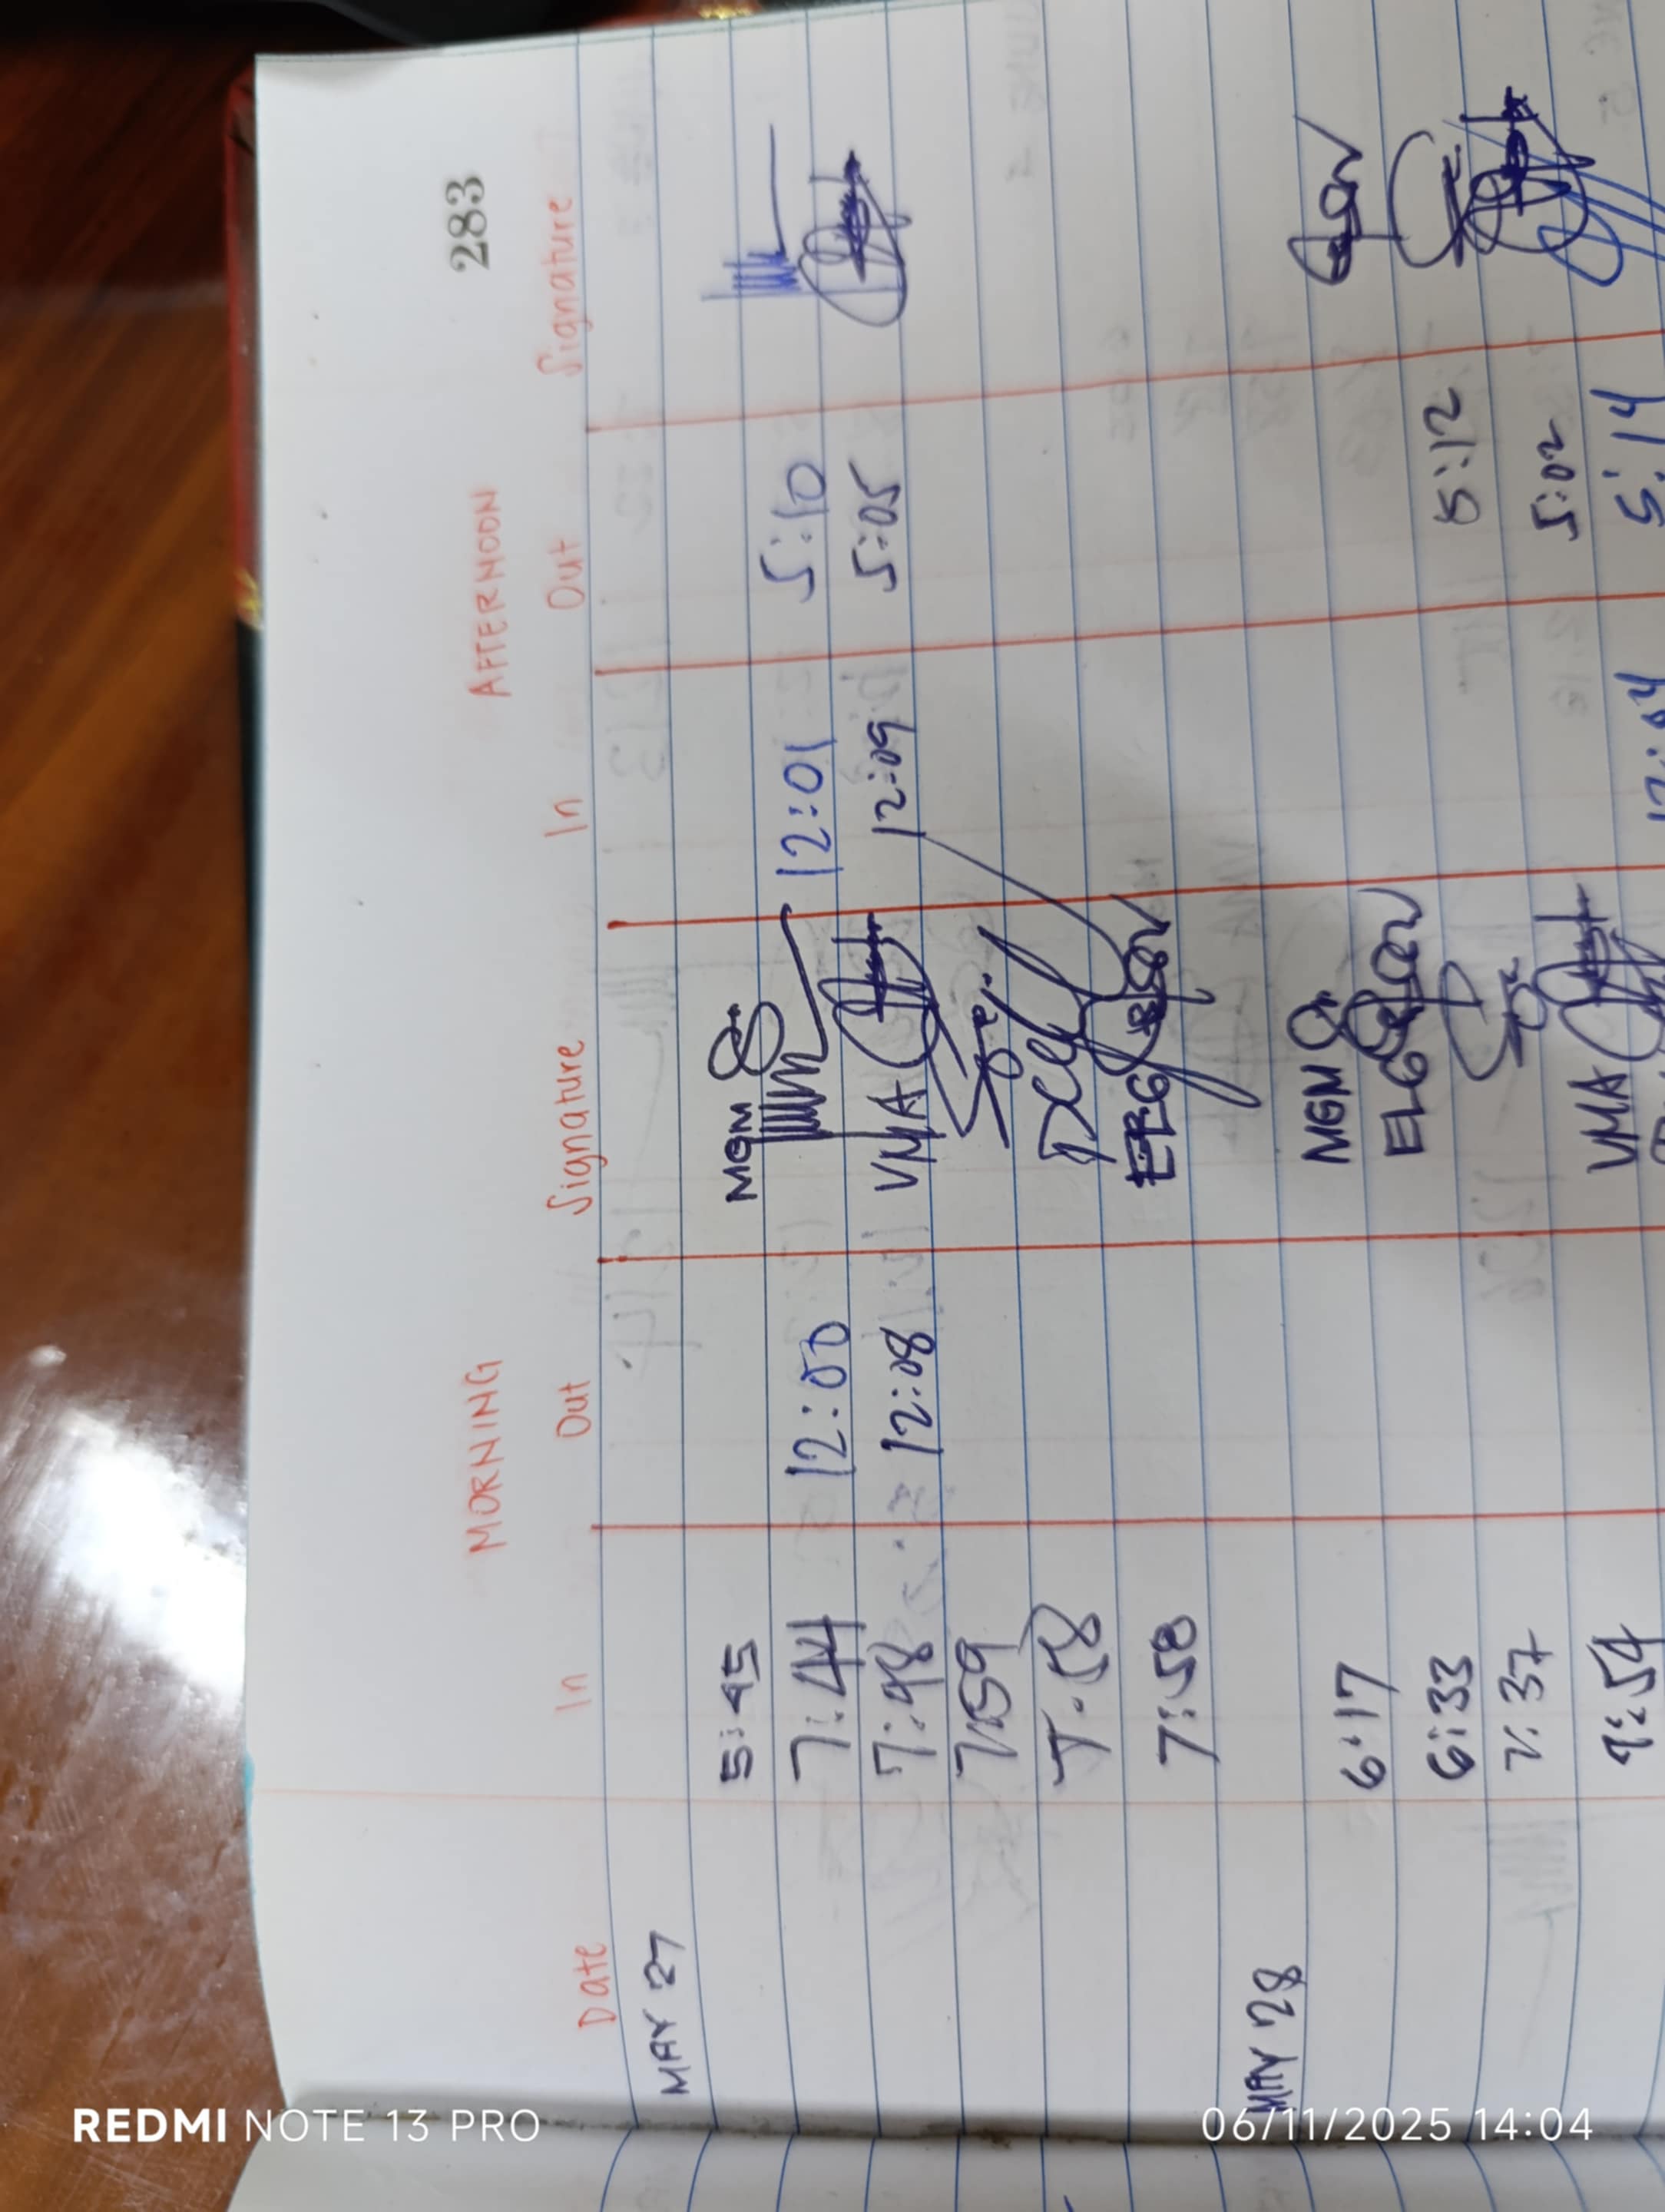 283
MORNING AFTERNOON
Date In Out Signature In Out Signature
MAY 27
5:45 MGM
7:44 12:00 12:01 5:10
7:48 12:08 VMA 12:09 5:05
7:59
7:58
MAY 28
6:17 MGM
6:33 ELG 5:12
7:37 5:02
7:54 VMA 5:14
REDMI NOTE 13 PRO 06/11/2025 14:04